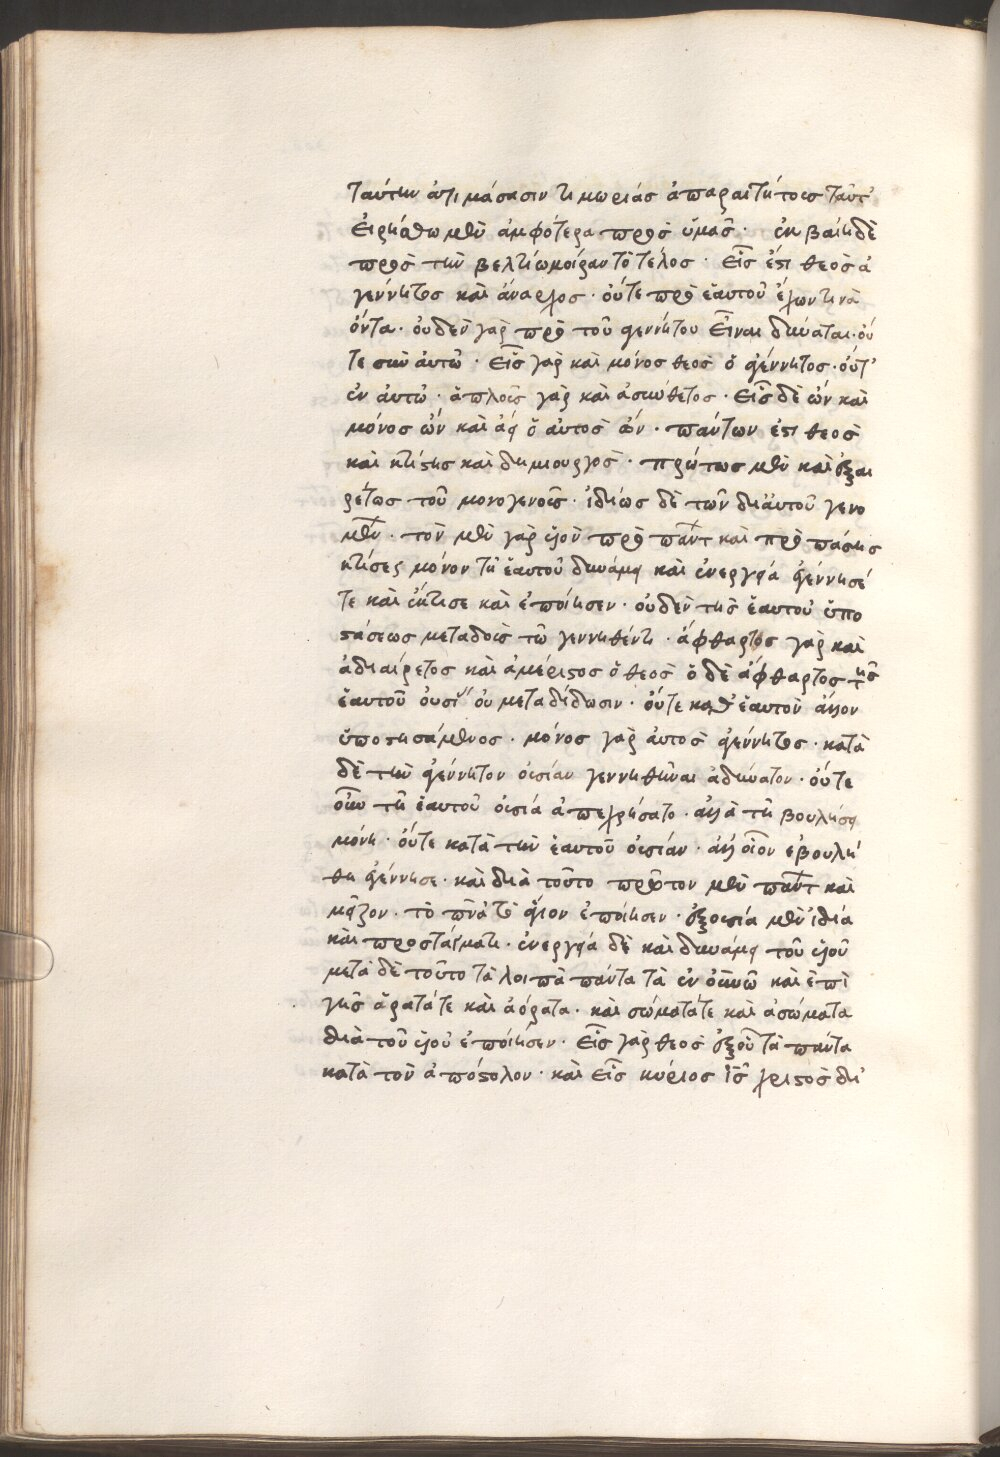 ταύτην ἀτιμάσασιν τιμωρίας ἀπαραιτήτοις ταῦτ'
εἰρήσθω μὲν ἀμφότερα πρὸς ὑμᾶς · ἐκβαίη δὲ
πρὸς τὴν βελτίω μοίραν τὸ τέλος · εἷς ἐστι θεὸς ἀ
γέννητος καὶ ἄναρχος · οὔτε πρὸ ἑαυτοῦ ἔχων τινὰ
ὄντα · οὐδὲν γὰρ πρὸ τοῦ ἀγεννήτου εἶναι δύναται · οὔ
τε σὺν αὐτῶ · εἷς γὰρ καὶ μόνος θεὸς ὁ ἀγέννητος · οὔτ'
ἐν αὐτῶ · ἁπλοῦς γὰρ καὶ ἀσύνθετος · εἷς δὲ ὢν καὶ
μόνος ὢν καὶ ἀεὶ ὁ αὐτὸς ὢν · πάντων ἐστὶ θεὸς
καὶ κτίστης καὶ δημιουργὸς · πρώτως μὲν καὶ ἐξαι
ρέτως τοῦ μονογενοῦς · ἰδίως δὲ τῶν δι' αὐτοῦ γενο
μέν · τὸν μὲν γὰρ υἱὸν πρὸ πάντ καὶ πρὸ πάσης
κτίσεως μόνον τῆ ἑαυτοῦ δυνάμει καὶ ἐνεργεία ἐγέννησέ
τε καὶ ἔκτισε καὶ ἐποίησεν · οὐδὲν τῆς ἑαυτοῦ ὑπο
στάσεως μεταδοὺς τῶ γεννηθέντι · ἄφθαρτος γὰρ καὶ
ἀδιαίρετος καὶ ἀμέριστος ὁ θεὸς ὁ δὲ ἄφθαρτος τῆς
ἑαυτοῦ οὐσί οὐ μεταδίδωσιν · οὔτε καθ' ἑαυτὸν ἄλλον
ὑποστησάμενος · μόνος γὰρ αὐτὸς ἀγέννητος · κατὰ
δὲ τὴν ἀγέννητον οὐσίαν γεννηθῆναι ἀδύνατον · οὔτε
οὖν τῆ ἑαυτοῦ οὐσία ἀπεχρήσατο · ἀλλὰ τῆ βουλήσει
μόνη · οὔτε κατὰ τὴν ἑαυτοῦ οὐσίαν · ἀλλ' οἷον ἐβουλή
θη ἐγέννησε · καὶ διὰ τοῦτο πρῶτον μὲν πάντ καὶ
μεῖζον · τὸ πνα τὸ ἅγιον ἐποίησεν · ἐξουσία μὲν ἰδία
καὶ προστάγματι · ἐνεργεία δὲ καὶ δυνάμει τοῦ υἱοῦ
μετὰ δὲ τοῦτο τὰ λοιπὰ πάντα τὰ ἐν οὐνῶ καὶ ἐπὶ
γῆς ὁρατά τε καὶ ἀόρατα · καὶ σώματά τε καὶ ἀσώματα
διὰ τοῦ υἱοῦ ἐποίησεν · εἷς γὰρ θεὸς ἐξ οὗ τὰ πάντα
κατὰ τὸν ἀπόστολον · καὶ εἷς κύριος ἰς χριστὸς δι'